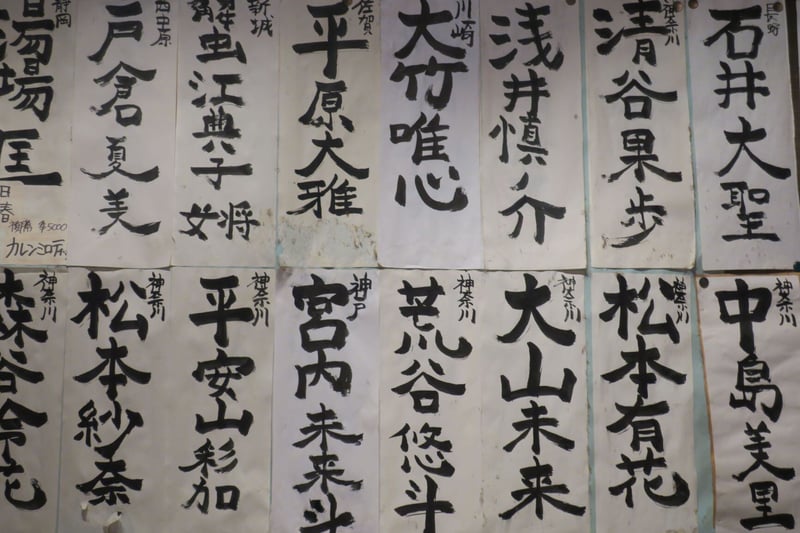 長野
石井大聖
神奈川
清谷果歩
浅井慎介
川崎
大竹唯心
佐賀
平原大雅
新城
虫江典子
女将
西中原
戸倉夏美
静岡
湯場匡
カルンコロ
神奈川
中島美里
神奈川
松本有花
神奈川
大山未来
神奈川
荒谷悠斗
神戸
宮内未来斗
神奈川
平安山彩加
神奈川
松本紗奈
神奈川
森谷